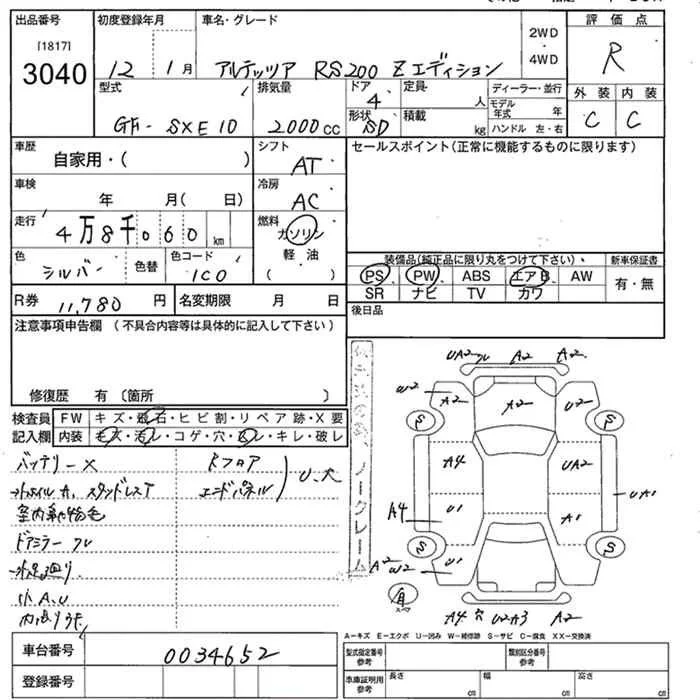 出品番号 初度登録年月 車名・グレード 評価点
[1817]
3040
12 1月 アルテッツア RS200 Zエディション
2WD
・
4WD
R
型式 排気量 ドア 4 定員 人 ディーラー・並行 外装 内装
GH- SXE10 2000cc 形状 SD 積載 kg モデル年式 年 C C
ハンドル 左・右
車歴 自家用・( ) シフト AT セールスポイント(正常に機能するものに限ります)
車検 年 月( 日) 冷房 AC
走行 4万8千060km 燃料 ガソリン
軽油
( )
色 シルバー 色替 色コード 1C0
装備品(純正品に限り丸をつけて下さい)、 新車保証書
PS PW ABS エアB AW 有・無
SR ナビ TV カワ
R券 11,780円 名変期限 月 日 後日品
注意事項申告欄 (不具合内容等は具体的に記入して下さい)
修復歴 有 〔箇所 〕
検査員 FW キズ・飛石・ヒビ割・リペア跡・X要
記入欄 内装 キズ・汚レ・コゲ・穴・・キレ・破レ
バッテリーX Rフロア
ホイルA、スタッドレスT エンドパネル U、大
室内動物毛
ドアミラー
小A、U
ノークレーム
UA2 A2 A2
W2 A2 U2
S S
A4 UA2
U1 A1 UA1
A4
S S
A2 W2 U1 U1
スペア
A4 穴 U2A3 A2
A-キズ E-エクボ U-凹み W-補修跡 S-サビ C-腐食 XX-交換済
車台番号 0034652
型式指定番号 参考 類別区分番号 参考
登録番号
車庫証明用 参考 長さ cm 幅 cm 高さ cm